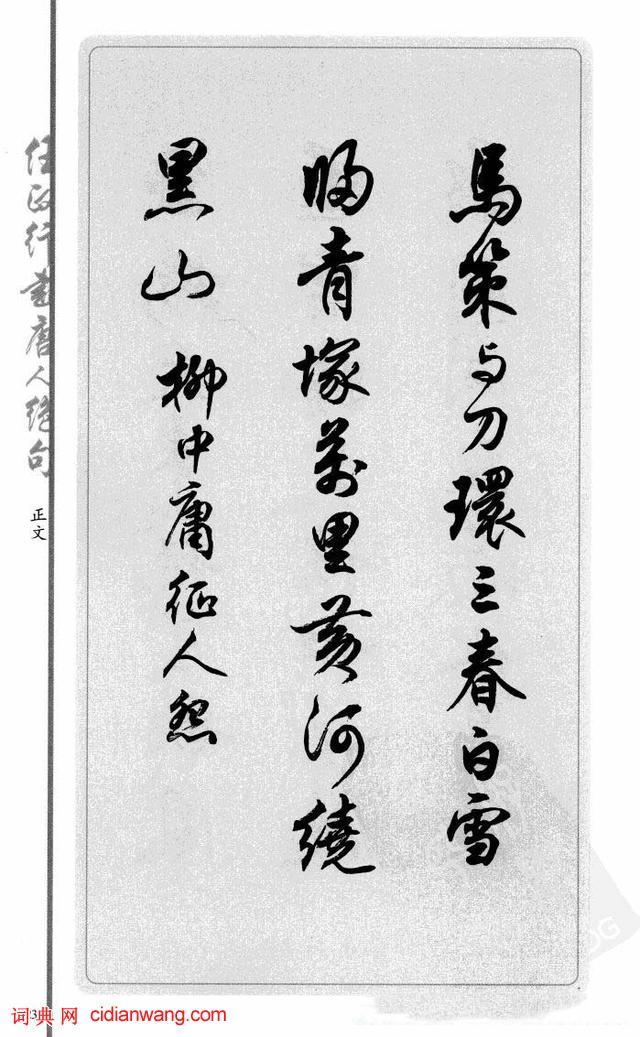 馬策与刀環三春白雪
歸青塚萬里黄河繞
黑山 柳中庸征人怨
任政行書唐人絶句
正文
3
词典网 cidianwang.com